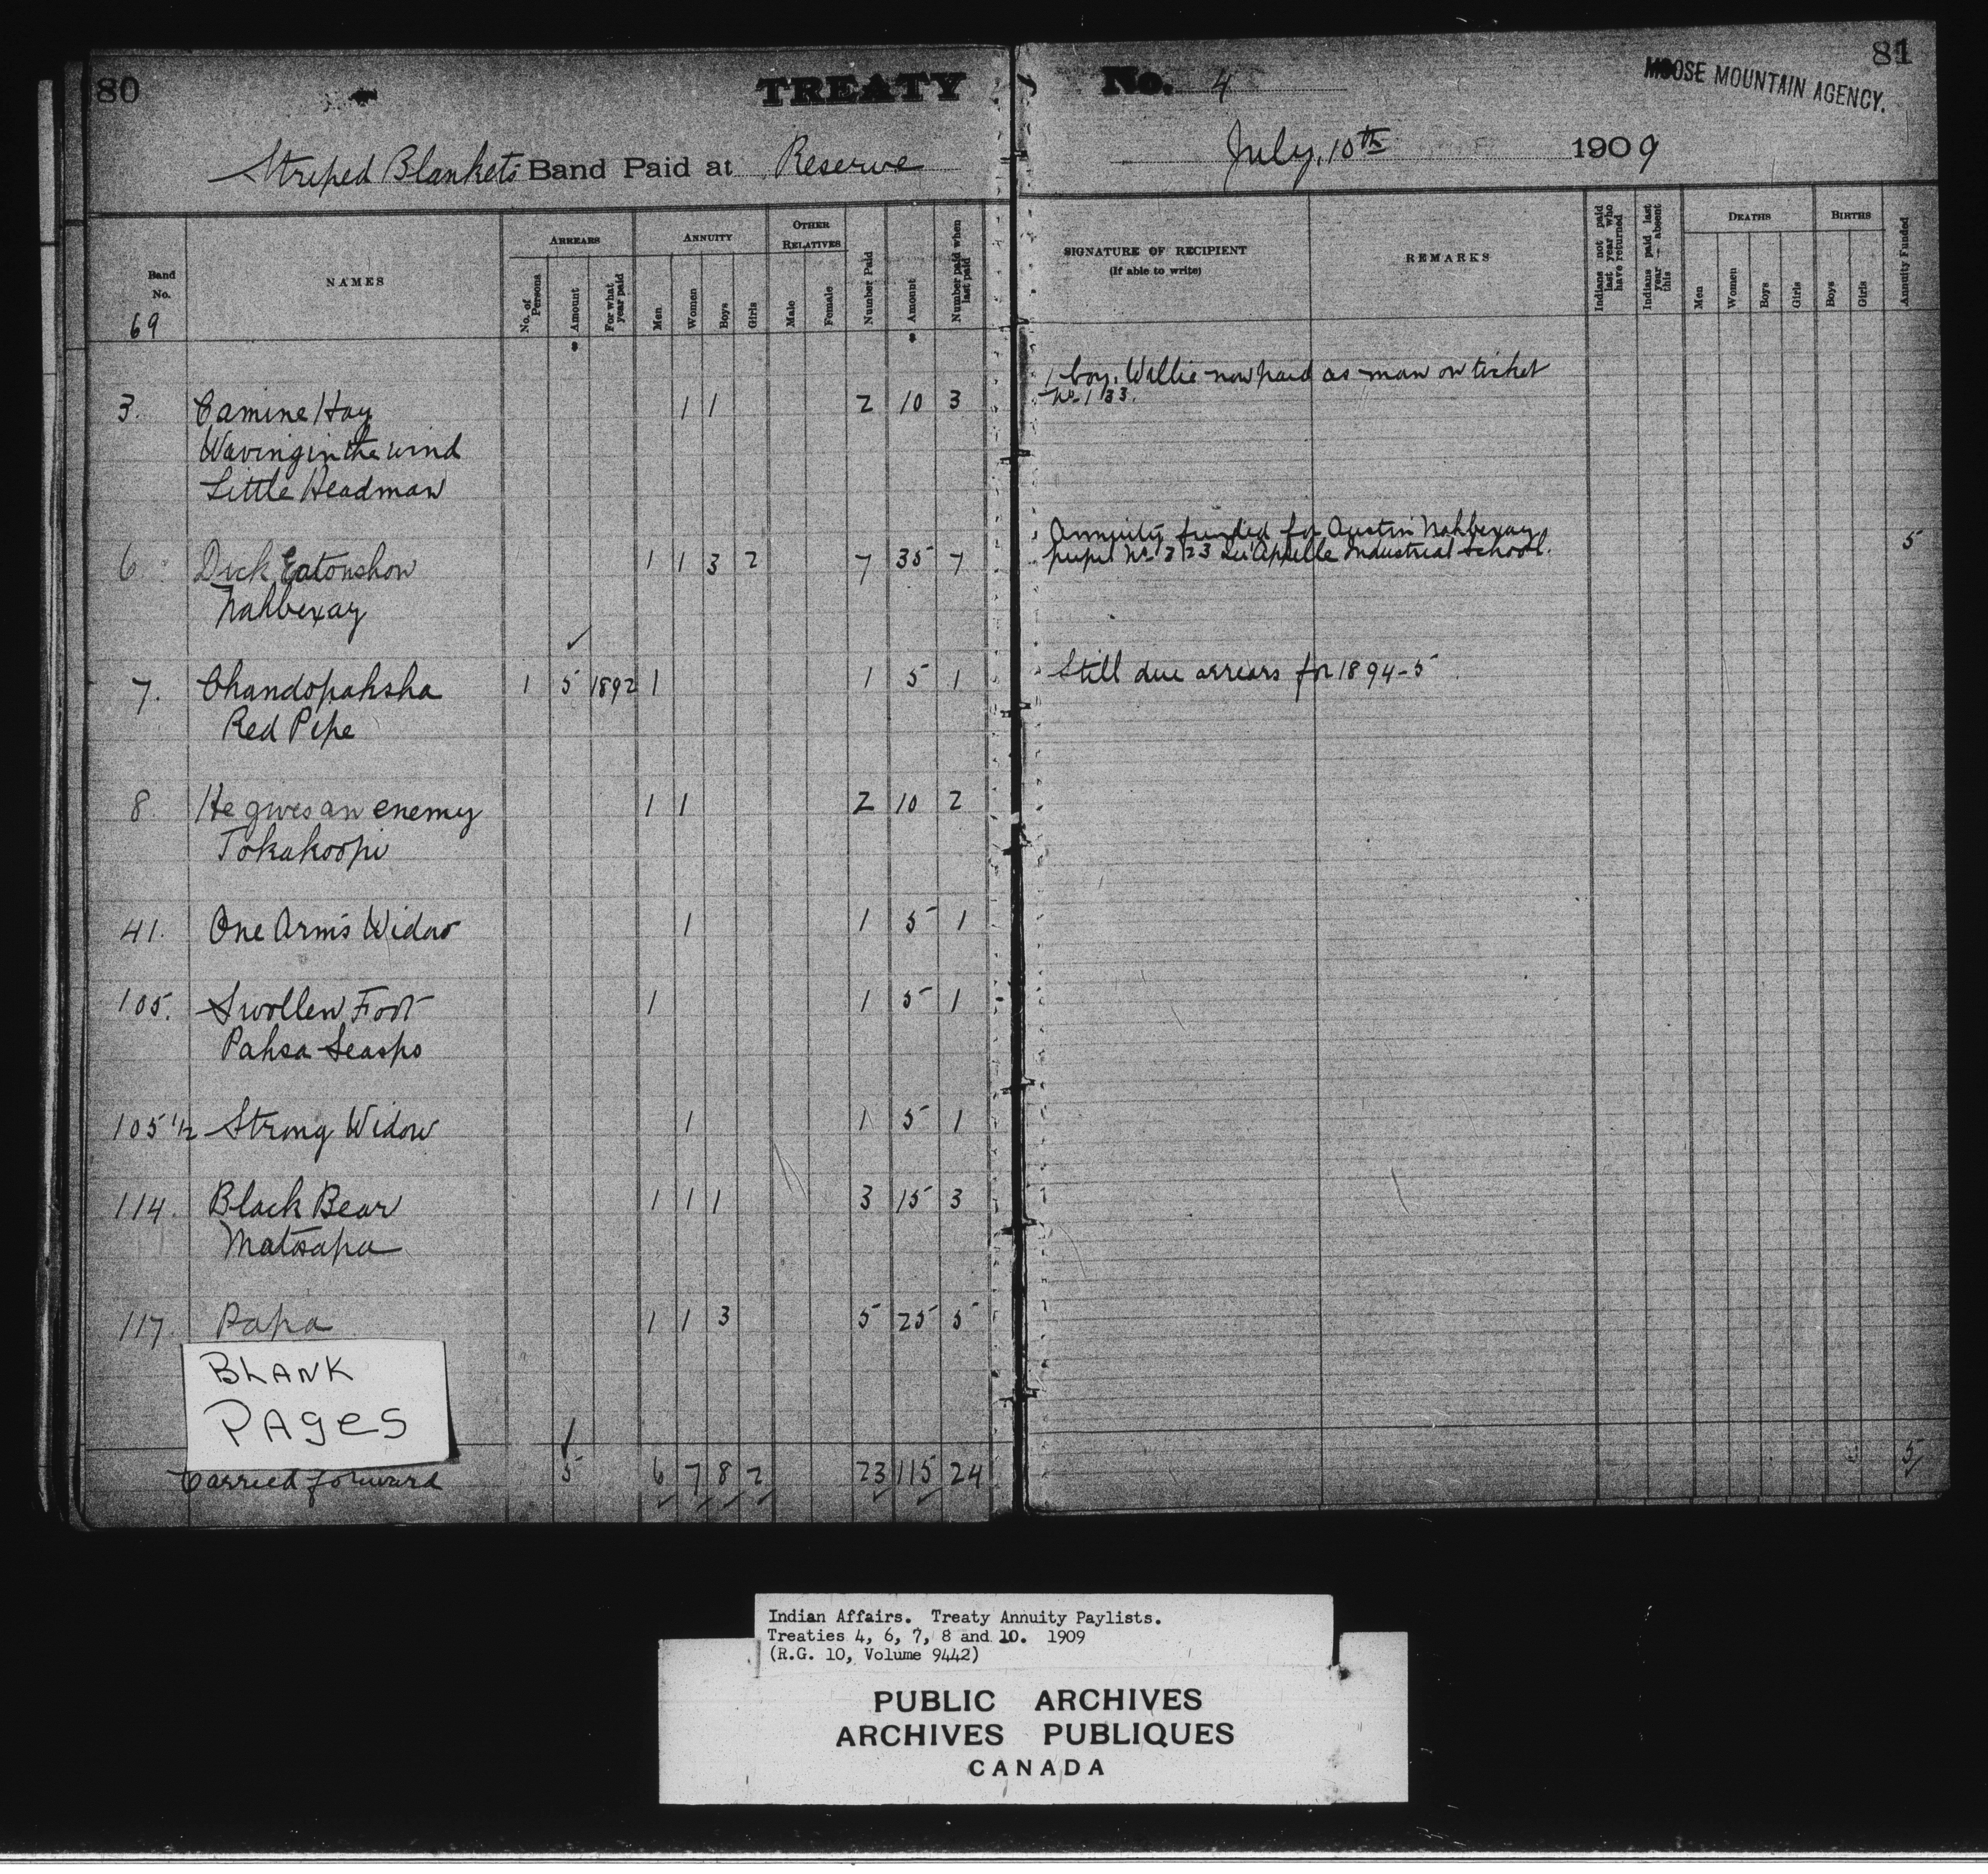 80
TREATY
No. 4
81
MOOSE MOUNTAIN AGENCY.
Striped Blankets Band Paid at Reserve
July, 10th 1909
Band No.
NAMES
ARREARS
No. of Persons
Amount
For what year paid
ANNUITY
Men
Women
Boys
Girls
OTHER RELATIVES
Male
Female
Number Paid
Amount
Number paid when last paid
SIGNATURE OF RECIPIENT
(If able to write)
REMARKS
Indians not paid last year who have returned
Indians paid last year — absent this
DEATHS
Men
Women
Boys
Girls
BIRTHS
Boys
Girls
Annuity Funded
69
1 boy, Willie now paid as man on ticket
No. 133.
3. Camine Hoy 1 1 2 10 3
Waving in the wind
Little Headman
Annuity funded for Austin Nahbexay
pupil No. 323 Qu'Appelle Industrial School. 5
6. Dick Eatonshow 1 1 3 2 7 35 7
Nahbexay
7. Chandopahsha 1 5 1892 1 1 5 1 Still due arrears for 1894-5
Red Pipe
8. He gives an enemy 1 1 2 10 2
Tokakoopi
41. One Arm's Widow 1 1 5 1
105. Swollen Foot 1 1 5 1
Pahsa Seaspo
105 1/2 Strong Widow 1 1 5 1
114. Black Bear 1 1 1 3 15 3
Matosapa
117. Papa 1 1 3 5 25 5
BLANK
PAGES
Carried forward 5 6 7 8 2 23 115 24 5
Indian Affairs. Treaty Annuity Paylists.
Treaties 4, 6, 7, 8 and 10. 1909
(R.G. 10, Volume 9442)
PUBLIC ARCHIVES
ARCHIVES PUBLIQUES
CANADA